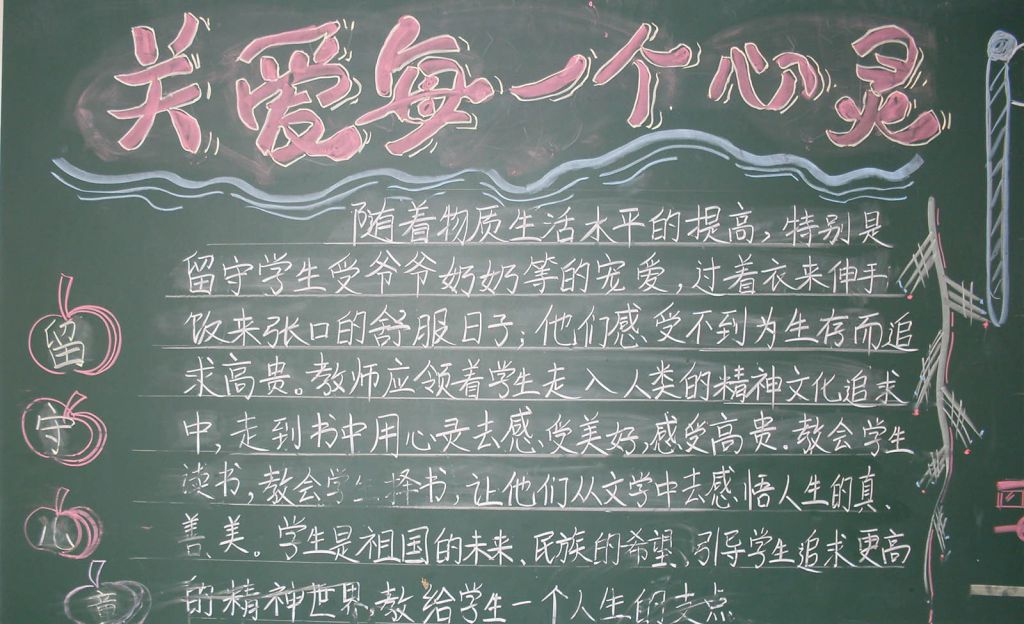 关爱每一个心灵
随着物质生活水平的提高，特别是
留守学生受爷爷奶奶等的宠爱，过着衣来伸手
饭来张口的舒服日子；他们感受不到为生存而追
求高贵。教师应领着学生走入人类的精神文化追求
中，走到书中用心灵去感受美好，感受高贵。教会学生
读书，教会学生择书，让他们从文学中去感悟人生的真、
善、美。学生是祖国的未来、民族的希望、引导学生追求更高
的精神世界，教给学生一个人生的支点
留
守
小
童